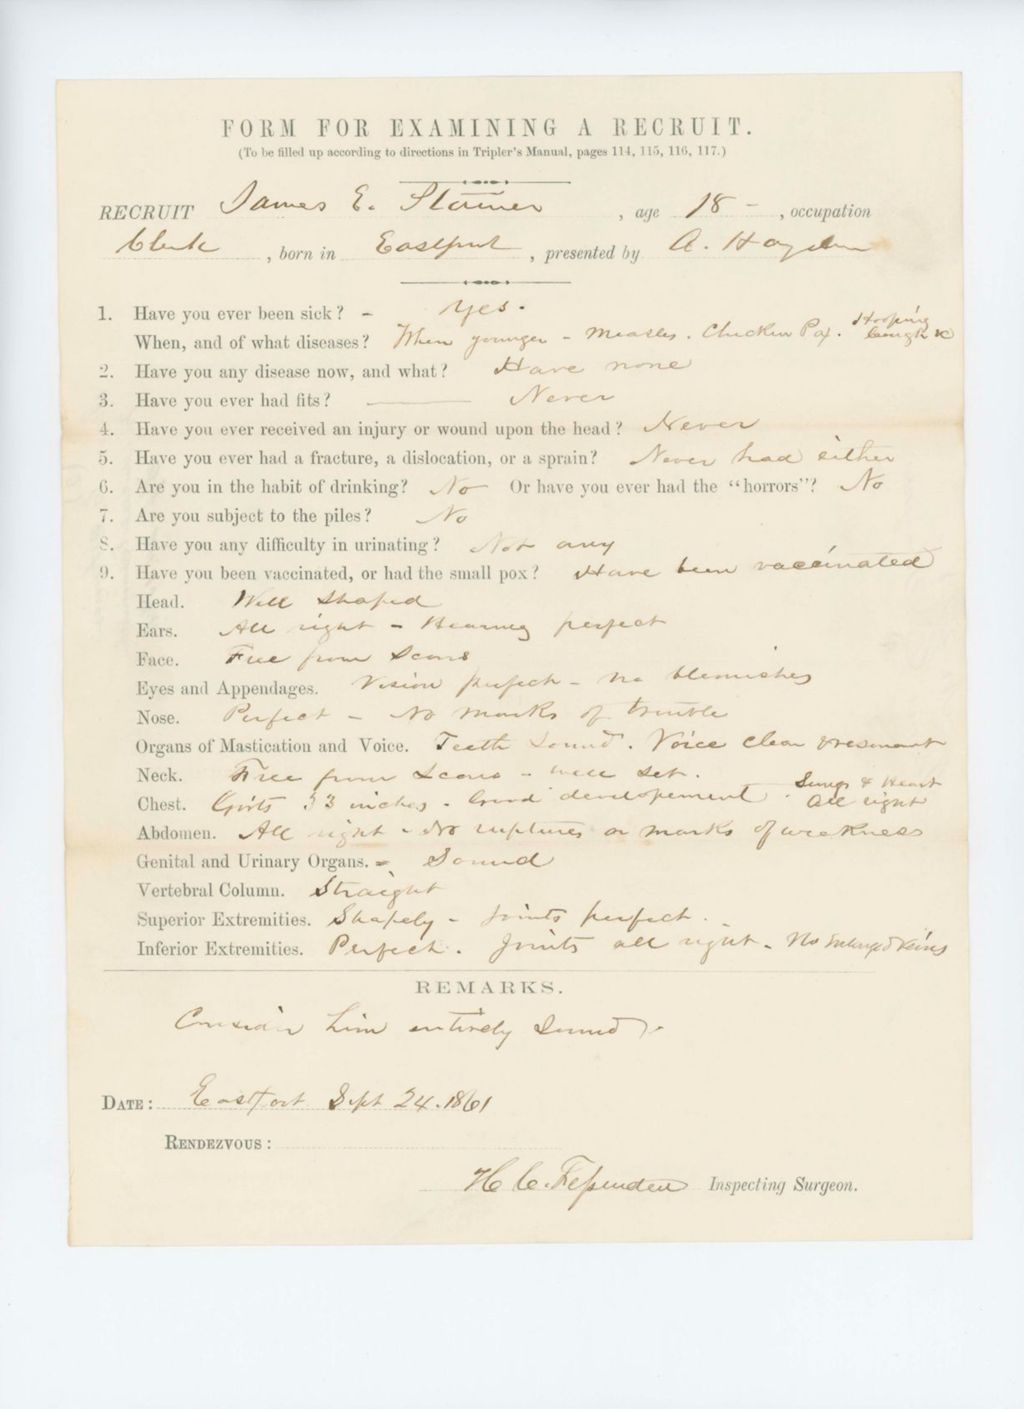 FORM FOR EXAMINING A RECRUIT.
(To be filled up according to directions in Tripler's Manual, pages 114, 115, 116, 117.)
RECRUIT James E. , age 18 - , occupation
Clerk , born in Eastport , presented by A. Hayden
1. Have you ever been sick? - Yes.
When, and of what diseases? When younger - Measles. Chicken Pox. Hooping Cough &c
2. Have you any disease now, and what? Have none
3. Have you ever had fits? Never
4. Have you ever received an injury or wound upon the head? Never
5. Have you ever had a fracture, a dislocation, or a sprain? Never had either
6. Are you in the habit of drinking? No Or have you ever had the "horrors"? No
7. Are you subject to the piles? No
8. Have you any difficulty in urinating? Not any
9. Have you been vaccinated, or had the small pox? Have been vaccinated
Head. Well shaped
Ears. All right - Hearing perfect
Face. Free from Scars
Eyes and Appendages. Vision perfect - no blemishes
Nose. Perfect - No marks of trouble
Organs of Mastication and Voice. Teeth Sound. Voice clear & resonant
Neck. Free from Scars - well set.
Chest. Girts 33 inches - Good developement. Lungs & Heart All right
Abdomen. All right - No ruptures or marks of weakness
Genital and Urinary Organs. - Sound
Vertebral Column. Straight
Superior Extremities. Shapely - Joints perfect.
Inferior Extremities. Perfect. Joints all right - No Enlarged Veins
REMARKS.
Consider him entirely Sound
DATE: Eastport Sept 24. 1861
RENDEZVOUS:
H C. Fessenden Inspecting Surgeon.